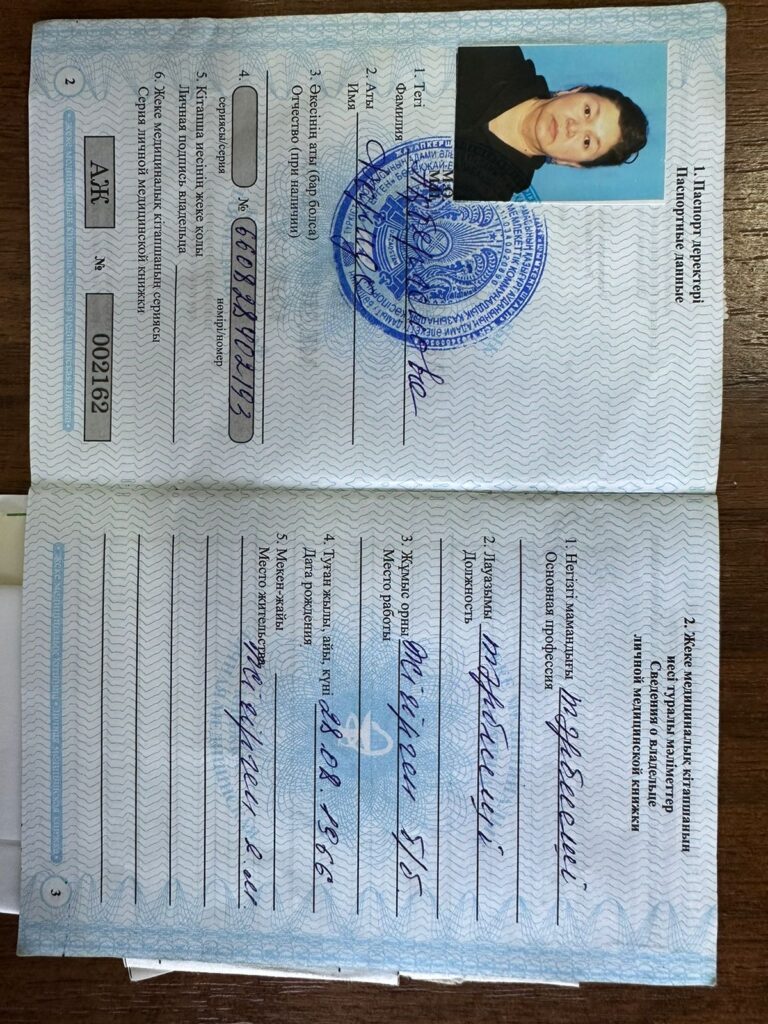 1. Паспорт деректері
Паспортные данные
1. Тегі
Фамилия
2. Аты
Имя
3. Әкесінің аты (бар болса)
Отчество (при наличии)
4. № 660828402193
сериясы/серия нөмірі/номер
5. Кітапша иесінің жеке қолы
Личная подпись владельца
6. Жеке медициналық кітапшаның сериясы
Серия личной медицинской книжки
АЖ № 002162
2
2. Жеке медициналық кітапшаның
иесі туралы мәліметтер
Сведения о владельце
личной медицинской книжки
1. Негізгі мамандығы тәрбиеші
Основная профессия
2. Лауазымы тәрбиеші
Должность
3. Жұмыс орны б/б
Место работы
4. Туған жылы, айы, күні 28.08.1966
Дата рождения
5. Мекен-жайы
Место жительства
3